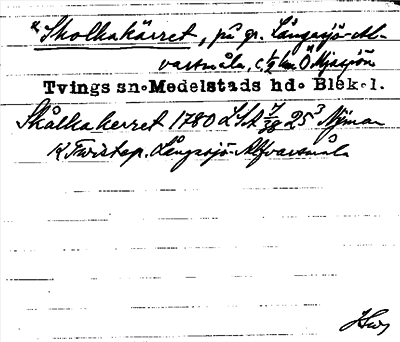 * Skolkakärret, på gr. Långasjö-Al-
varsmåla, c. ½ km Ö
Tvings sn. Medelstads hd. Blek.l.
Skålkakerret 1780 LSA 7/38 25³ Nyman
K Tvistep. Långasjö-Alfvarsmåla